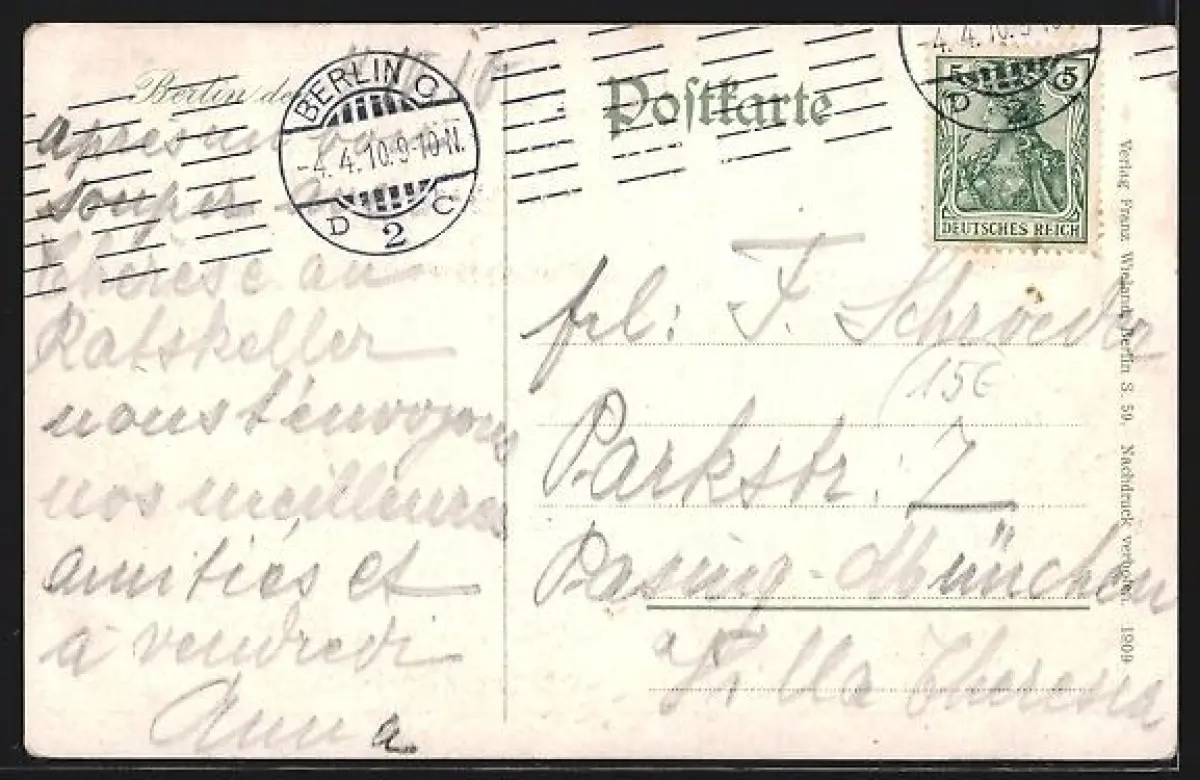 Berlin de
apres un
souper
Thérèse au
Ratskeller
nous t'envoyons
nos meilleures
amitiés et
à vendredi
Anna
BERLIN C
-4.4.10.9-10N.
2
C
Postkarte
-4.4.10.9-10
5 5
DEUTSCHES REICH
frl: T. Schroeder
(15€
Parkstr. 7
Pasing-München
Villa Theresia
Verlag Franz Wieland, Berlin S. 59. Nachdruck verboten. 1909